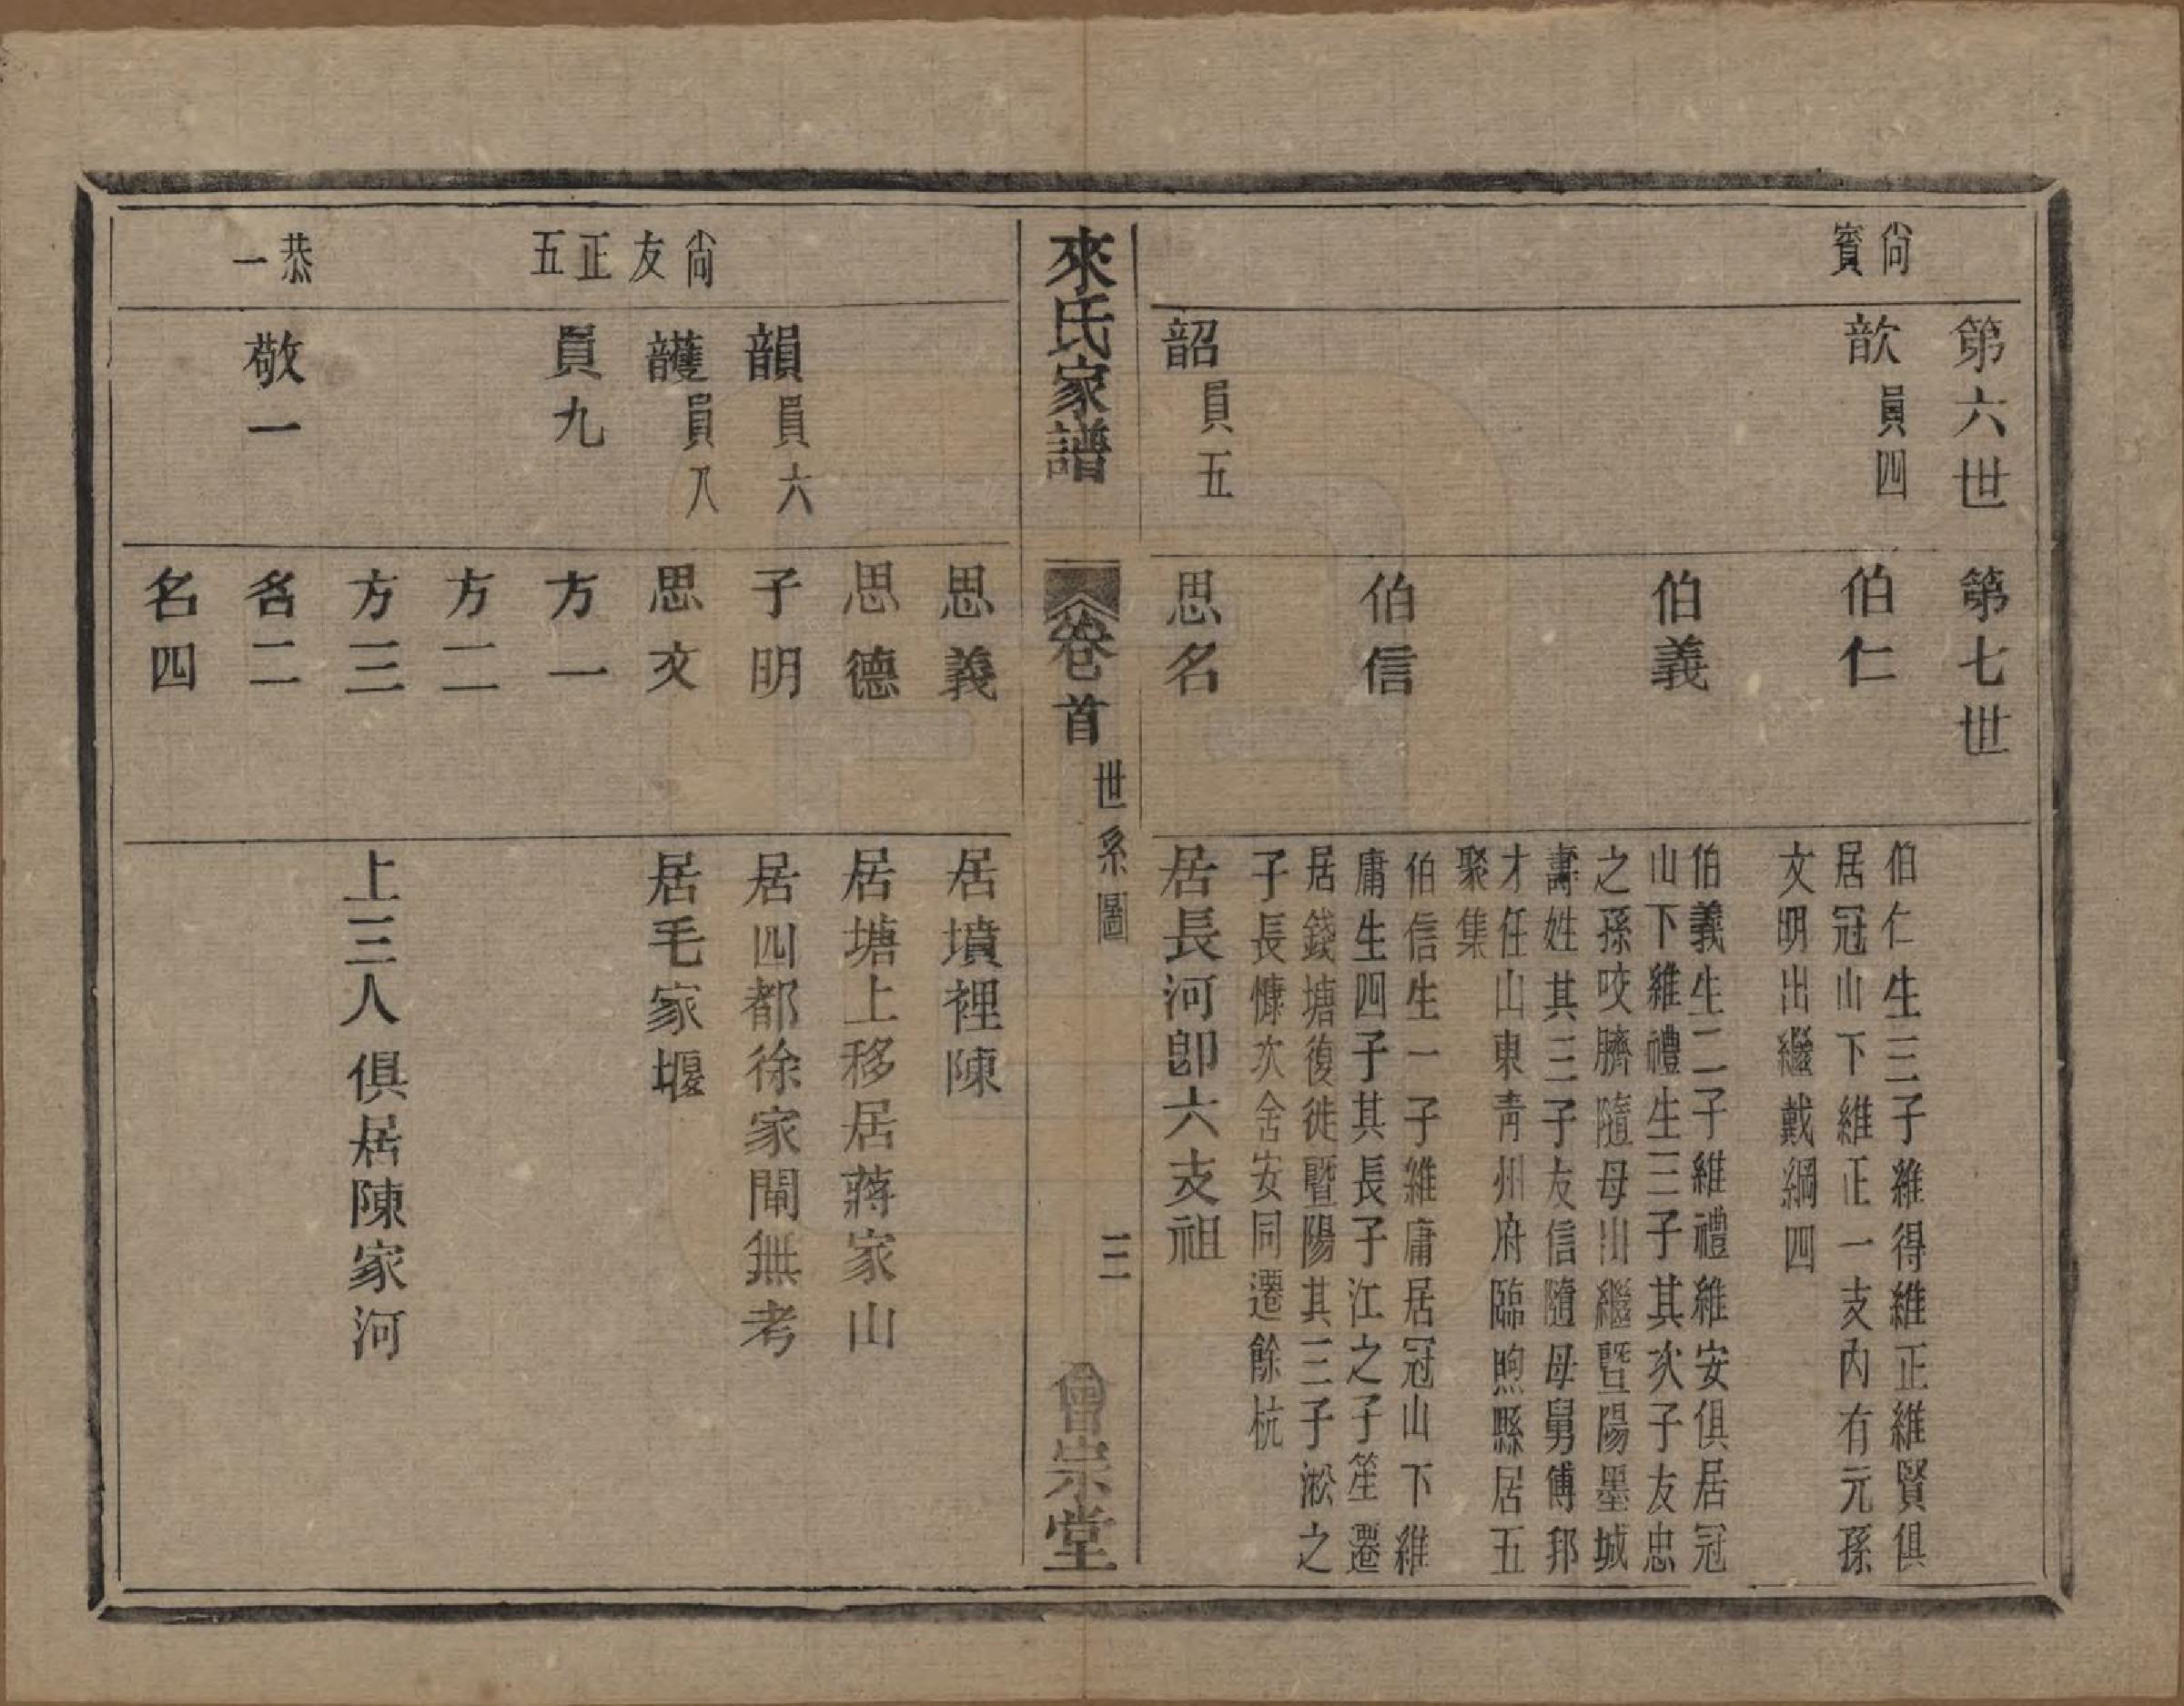 尙賓
第六世
歆員四
韶員五
第七世
伯仁
伯義
伯信
思名
伯仁生三子維得維正維賢俱
居冠山下維正一支內有元孫
文明出繼戴綱四
伯義生二子維禮維安俱居冠
山下維禮生三子其次子友忠
之孫咬臍隨母出繼暨陽墨城
壽姓其三子友信隨母舅傅邦
才任山東靑州府臨朐縣居五
聚集
伯信生一子維庸居冠山下維
庸生四子其長子江之子笙遷
居錢塘復徙暨陽其三子淞之
子長慷次舍安同遷餘杭
居長河卽六支祖
來氏家譜
卷首
世系圖
三
會宗堂
尙友正五
恭一
韻員六
頀員八
員九
敬一
思義
思德
子明
思文
方一
方二
方三
名二
名四
居墳裡陳
居塘上移居蔣家山
居四都徐家閘無考
居毛家堰
上三人俱居陳家河